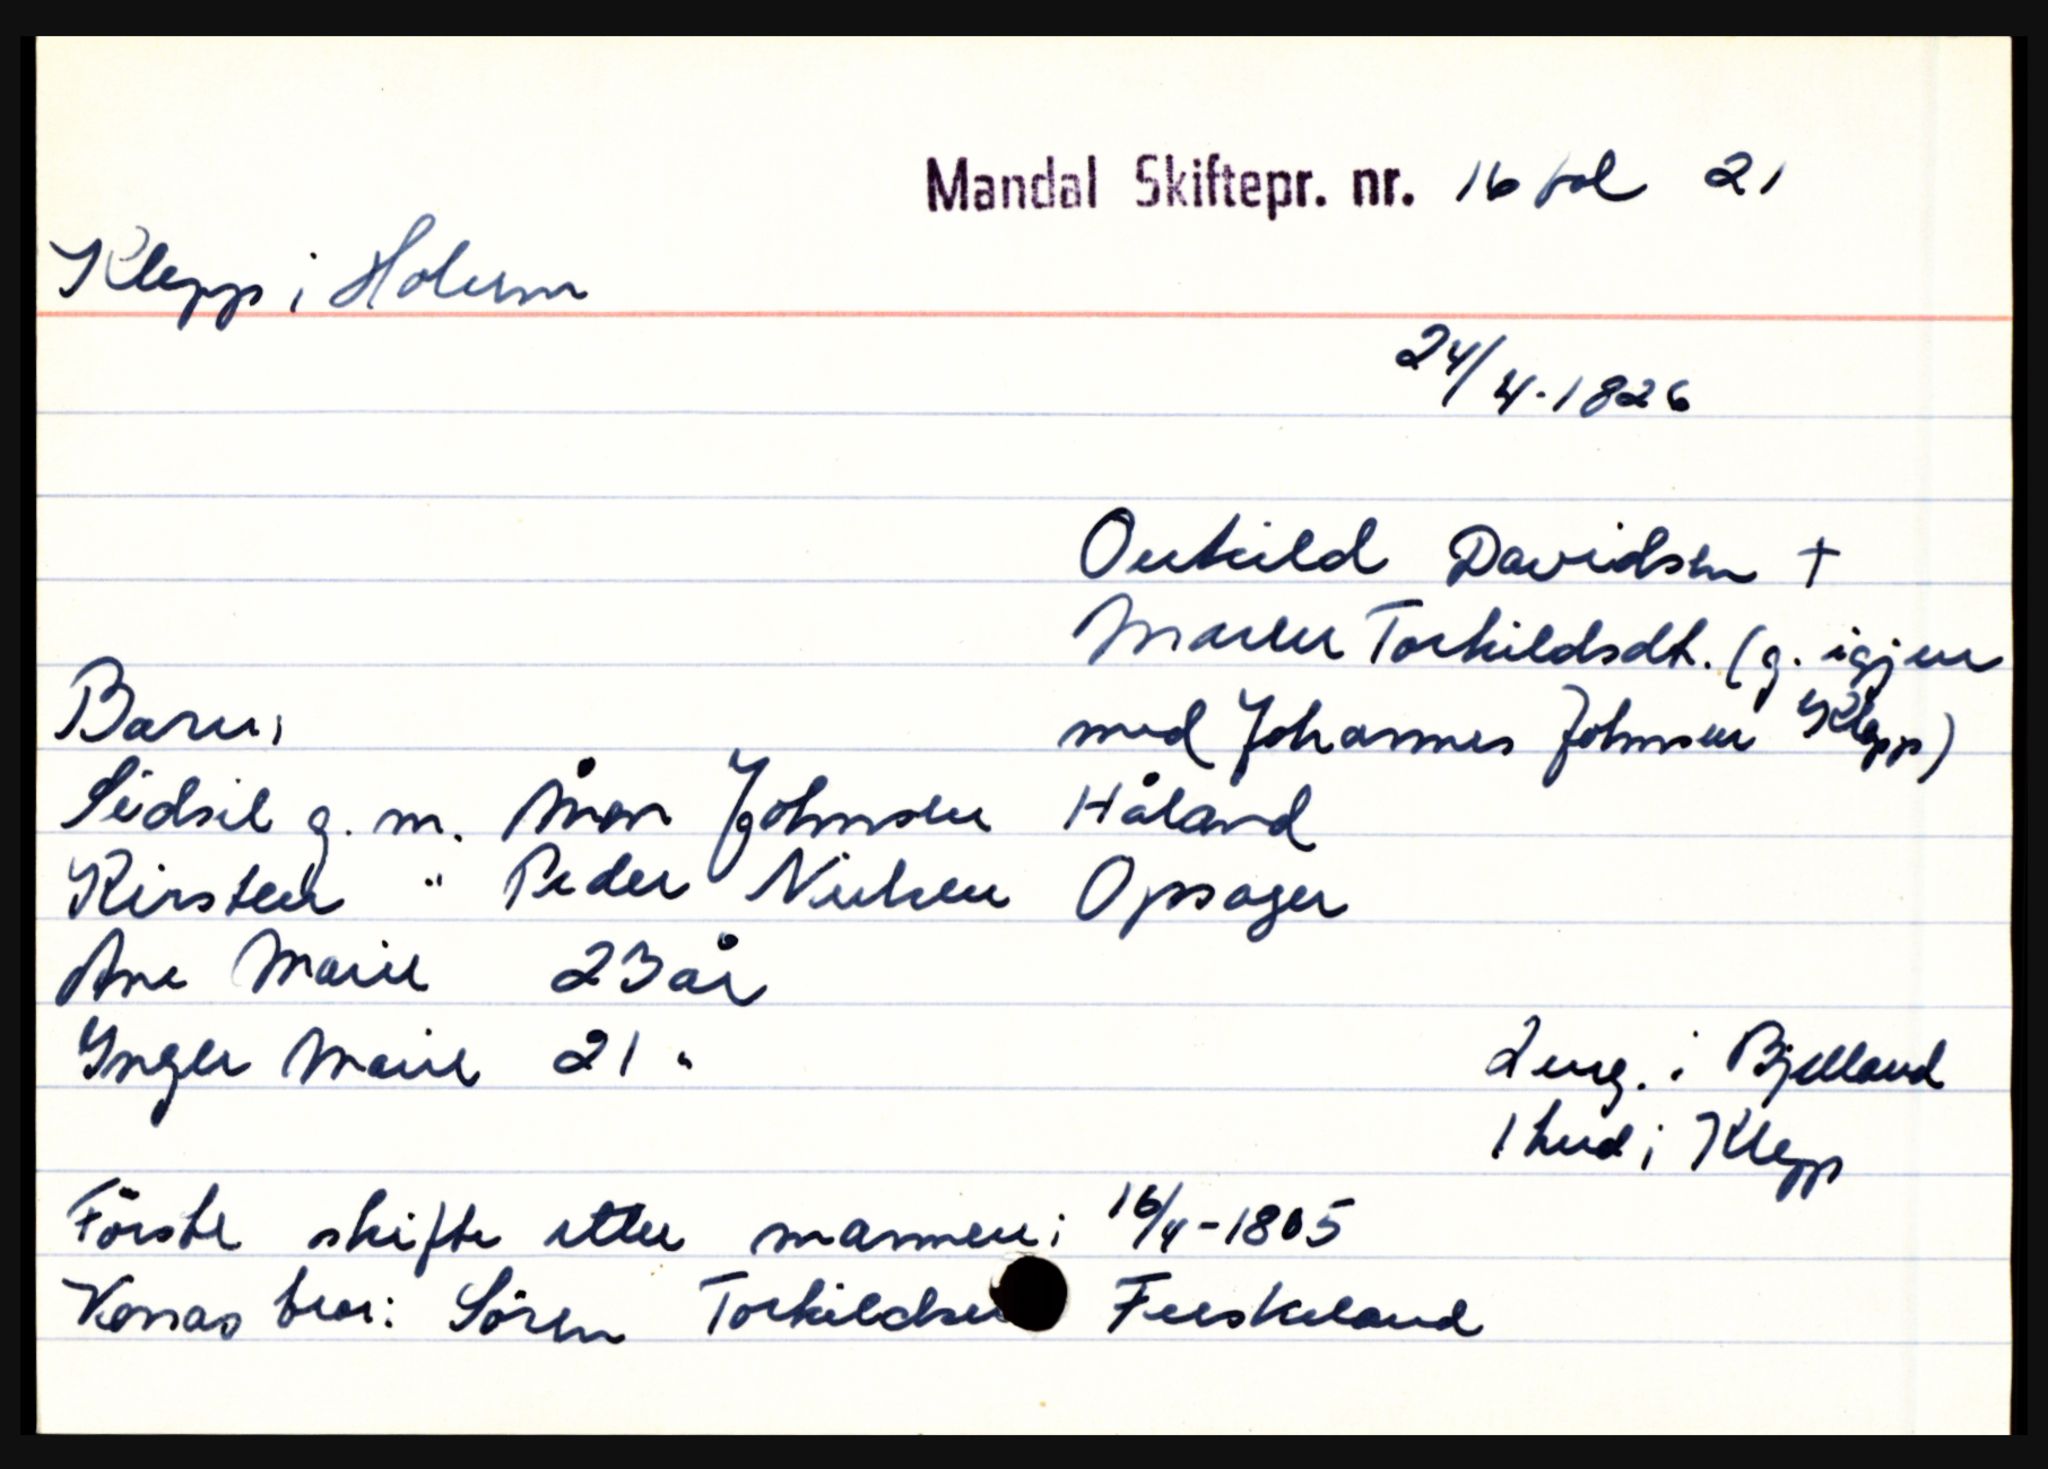 Mandal Skiftepr. nr. 16 fol 21
Klepp i Holum
24/4-1826
Onkild Davidsen +
Maren Torkildsdt. (g. igjen
Barn: med Johannes Johnsen Klepp)
Sidsil g. m. Ånon Johnsen Håland
Kirsten " Peder Nielsen Opsager
Ane Marie 23 år
Inger Marie 21 "
2 eng. i Bjelland
1 hud i Klepp
Förste skifte etter mannen: 16/4-1805
Konas bror: Sören Torkildsen Feeskeland